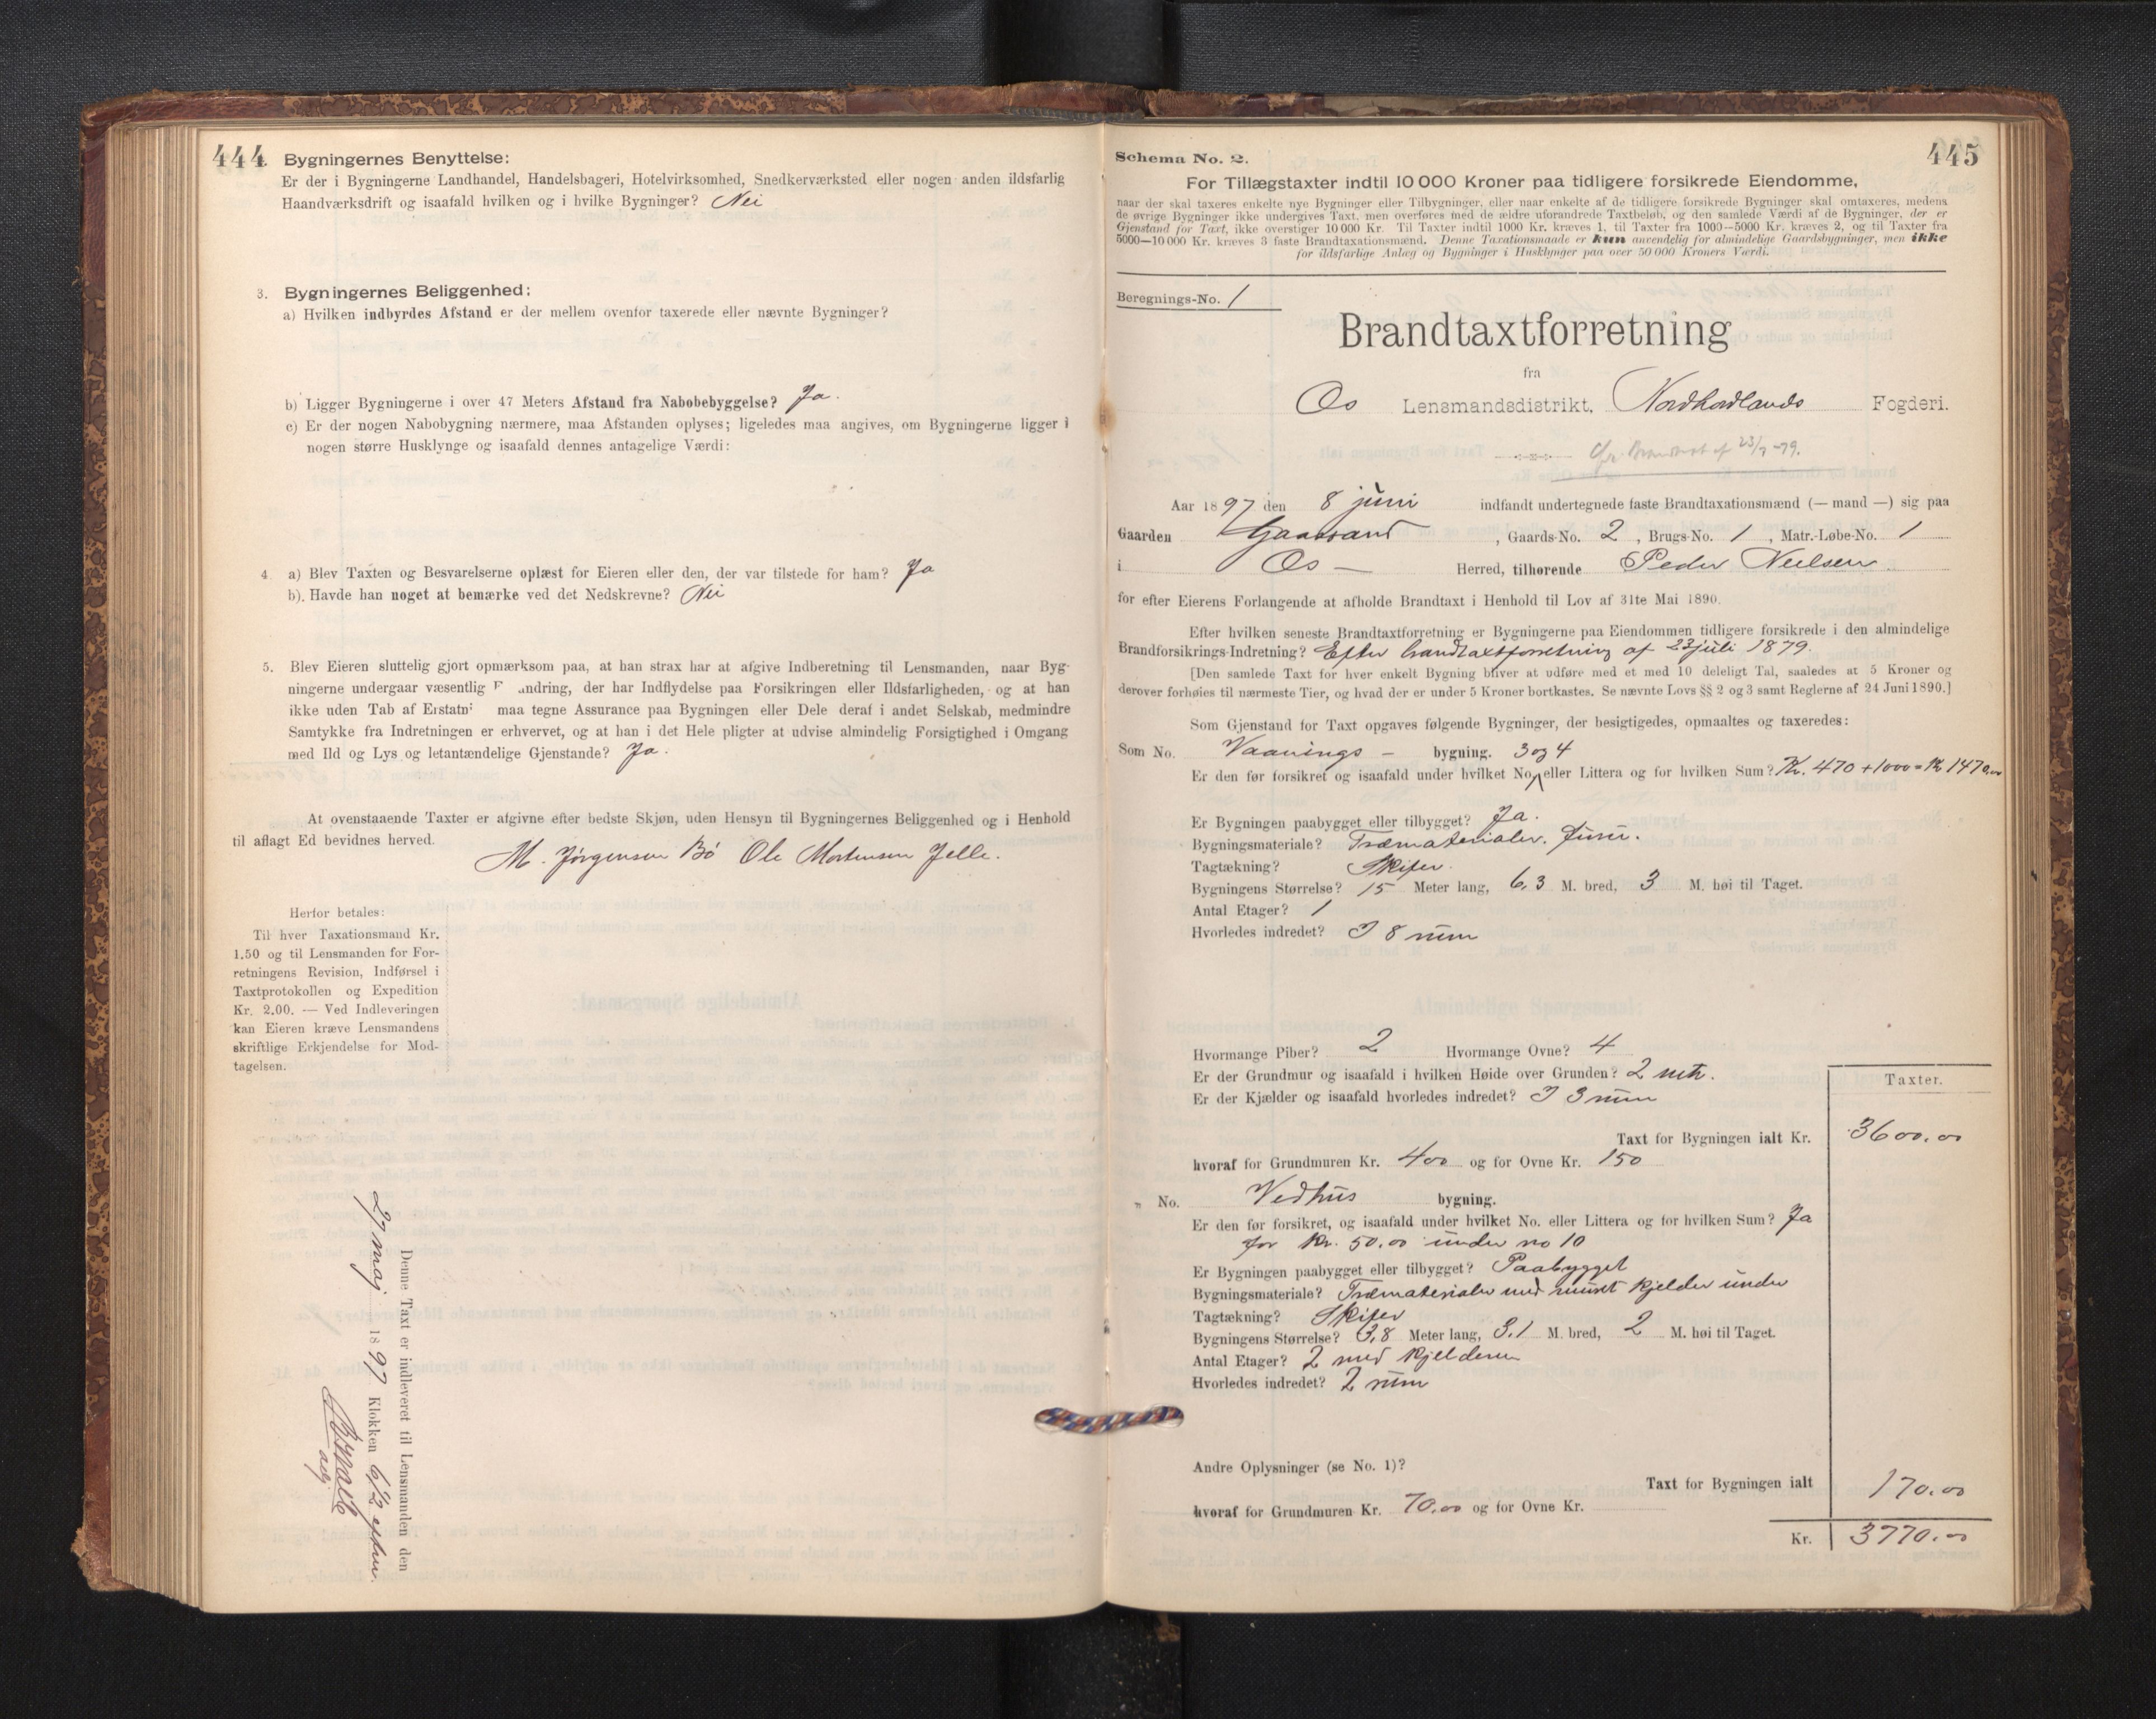 444.
Bygningernes Benyttelse:
Er der i Bygningerne Landhandel, Handelsbageri, Hotelvirksomhed, Snedkerværksted eller nogen anden ildsfarlig
Haandværksdrift og isaafald hvilken og i hvilke Bygninger? Nei
3. Bygningernes Beliggenhed:
a) Hvilken indbyrdes Afstand er der mellem ovenfor taxerede eller nævnte Bygninger?
b) Ligger Bygningerne i over 47 Meters Afstand fra Nabobebyggelse? Ja.
c) Er der nogen Nabobygning nærmere, maa Afstanden oplyses; ligeledes maa angives, om Bygningerne ligger i
nogen større Husklynge og isaafald dennes antagelige Værdi:
4. a) Blev Taxten og Besvarelserne oplæst for Eieren eller den, der var tilstede for ham? Ja
b). Havde han noget at bemærke ved det Nedskrevne? Nei
5. Blev Eieren sluttelig gjort opmærksom paa, at han strax har at afgive Indberetning til Lensmanden, naar Byg-
ningerne undergaar væsentlig F andring, der har Indflydelse paa Forsikringen eller Ildsfarligheden, og at han
ikke uden Tab af Erstatn maa tegne Assurance paa Bygningen eller Dele deraf i andet Selskab, medmindre
Samtykke fra Indretningen er erhvervet, og at han i det Hele pligter at udvise almindelig Forsigtighed i Omgang
med Ild og Lys og letantændelige Gjenstande? Ja.
At ovenstaaende Taxter er afgivne efter bedste Skjøn, uden Hensyn til Bygningernes Beliggenhed og i Henhold
til aflagt Ed bevidnes herved.
M. Jørgensen Bø Ole Mortensen Jelle.
Herfor betales:
Til hver Taxationsmand Kr.
1.50 og til Lensmanden for For-
retningens Revision, Indførsel i
Taxtprotokollen og Expedition
Kr. 2.00. — Ved Indleveringen
kan Eieren kræve Lensmandens
skriftlige Erkjendelse for Mod-
tagelsen.
Denne Taxt er indleveret til Lensmanden den
27 maj 1897 Klokken 6 1/2 eftm.
445
Schema No. 2.
For Tillægstaxter indtil 10 000 Kroner paa tidligere forsikrede Eiendomme,
naar der skal taxeres enkelte nye Bygninger eller Tilbygninger, eller naar enkelte af de tidligere forsikrede Bygninger skal omtaxeres, medens
de øvrige Bygninger ikke undergives Taxt, men overføres med de ældre uforandrede Taxtbeløb, og den samlede Værdi af de Bygninger, der er
Gjenstand for Taxt, ikke overstiger 10 000 Kr. Til Taxter indtil 1000 Kr. kræves 1, til Taxter fra 1000—5000 Kr. kræves 2, og til Taxter fra
5000—10 000 Kr. kræves 3 faste Brandtaxationsmænd. Denne Taxationsmaade er kun anvendelig for almindelige Gaardsbygninger, men ikke
for ildsfarlige Anlæg og Bygninger i Husklynger paa over 50 000 Kroners Værdi.
Beregnings-No. 1
Brandtaxtforretning
fra
Os Lensmandsdistrikt, Nordhordlands Fogderi.
23/7-79.
Aar 1897 den 8 juni indfandt undertegnede faste Brandtaxationsmænd (— mand —) sig paa
Gaarden Gaassand, Gaards-No. 2, Brugs-No. 1, Matr.-Løbe-No. 1
i Os — Herred, tilhørende Peder Neelsen
for efter Eierens Forlangende at afholde Brandtaxt i Henhold til Lov af 31te Mai 1890.
Efter hvilken seneste Brandtaxtforretning er Bygningerne paa Eiendommen tidligere forsikrede i den almindelige
Brandforsikrings-Indretning? Efter brandtaxtforretning af 23 juli 1879.
[Den samlede Taxt for hver enkelt Bygning bliver at udføre med et med 10 deleligt Tal, saaledes at 5 Kroner og
derover forhøies til nærmeste Tier, og hvad der er under 5 Kroner bortkastes. Se nævnte Lovs §§ 2 og 3 samt Reglerne af 24 Juni 1890.]
Som Gjenstand for Taxt opgaves følgende Bygninger, der besigtigedes, opmaaltes og taxeredes:
Som No. Vaanings — bygning. 3 og 4
Er den før forsikret og isaafald under hvilket No. eller Littera og for hvilken Sum? Kr. 470 + 1000 = Kr 1470,00
Er Bygningen paabygget eller tilbygget? Ja.
Bygningsmateriale? Træmaterialer. Furu.
Tagtækning? Skifer.
Bygningens Størrelse? 15 Meter lang, 6,3 M. bred, 3 M. høi til Taget.
Antal Etager? 1
Hvorledes indredet? I 8 rum
Hvormange Piber? 2 Hvormange Ovne? 4
Er der Grundmur og isaafald i hvilken Høide over Grunden? 2 mtr.
Er der Kjælder og isaafald hvorledes indredet? I 3 rum
Taxter.
Taxt for Bygningen ialt Kr. 3600,00
hvoraf for Grundmuren Kr. 400 og for Ovne Kr. 150
„ No. Vedhus bygning.
Er den før forsikret, og isaafald under hvilket No. eller Littera og for hvilken Sum? Ja
for Kr. 50,00 under no 10
Er Bygningen paabygget eller tilbygget? Paabygget
Bygningsmateriale? Træmaterialer med muret kjelder under
Tagtækning? Skifer
Bygningens Størrelse? 3,8 Meter lang, 3,1 M. bred, 2 M. høi til Taget.
Antal Etager? 2 med kjelderen
Hvorledes indredet? 2 rum
Andre Oplysninger (se No. 1)?
Taxt for Bygningen ialt 170,00
hvoraf for Grundmuren Kr. 70,00 og for Ovne Kr.
Kr. 3770,00